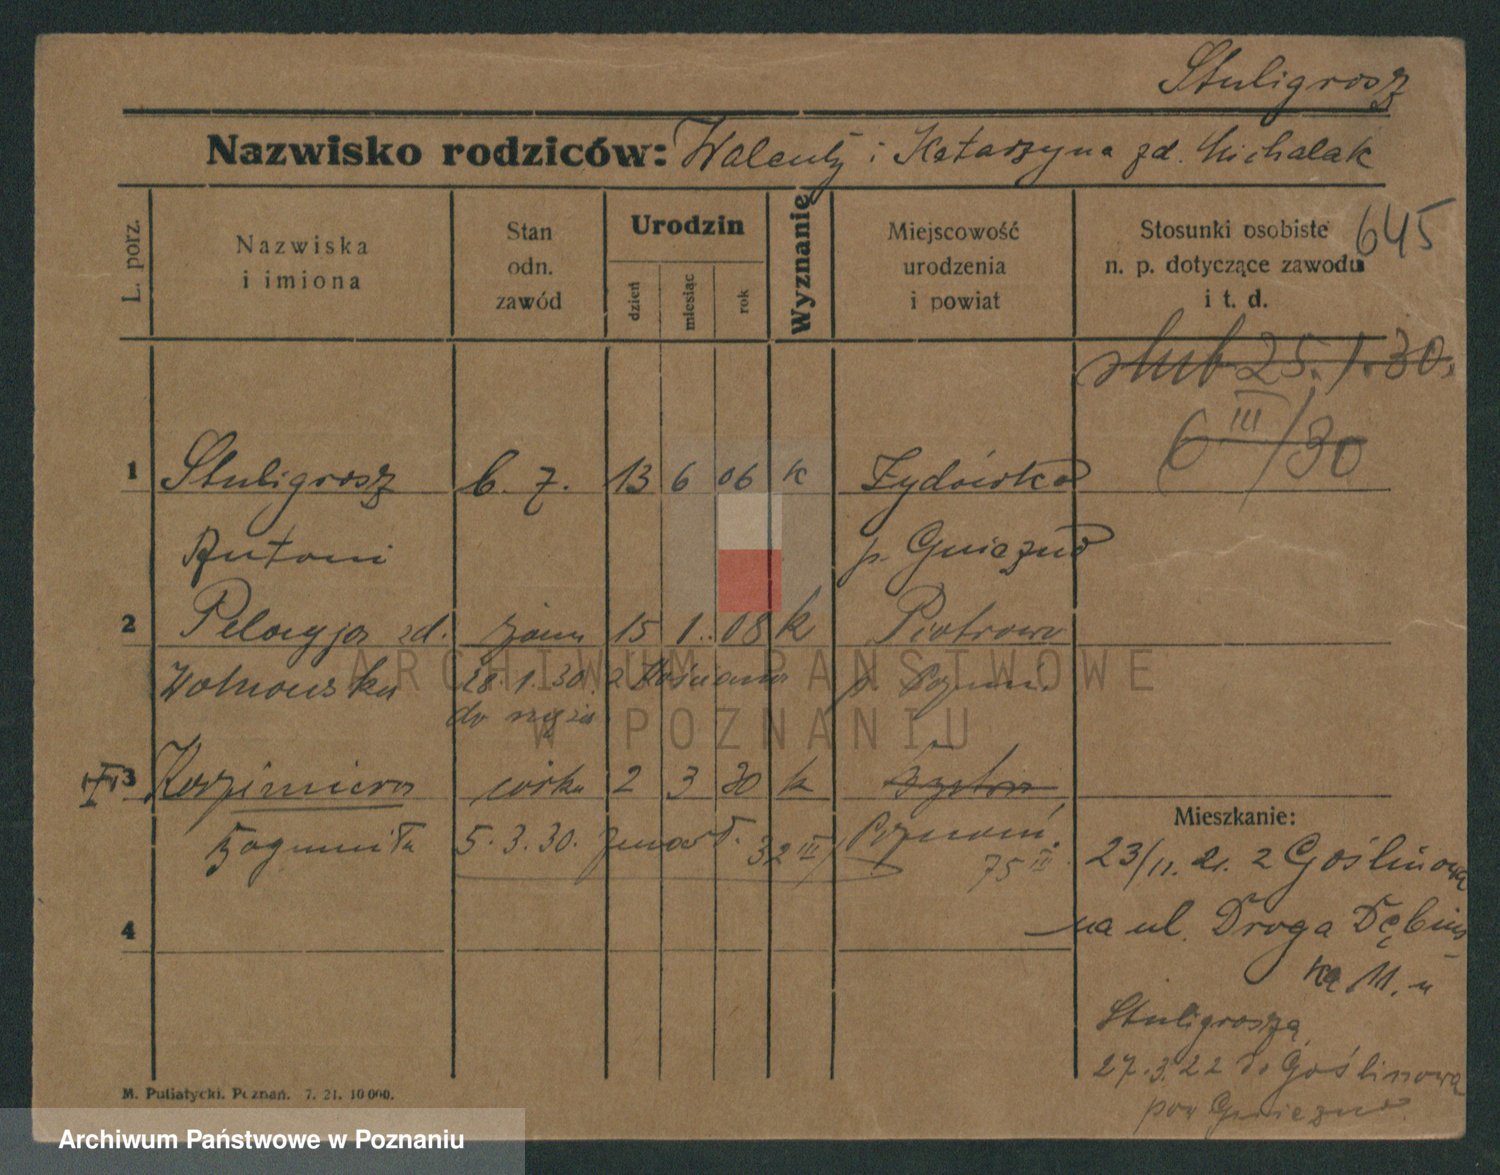 Stuligrosz
Nazwisko rodziców: Walenty i Katarzyna zd. Michalak
L. porz.
Nazwiska
i imiona
Stan
odn.
zawód
Urodzin
dzień
miesiąc
rok
Wyznanie
Miejscowość
urodzenia
i powiat
Stosunki osobiste
n. p. dotyczące zawodu
i t. d.
645
ślub 25. 1. 30.
6 III/30
1 Stuligrosz b. z. 13 6 06 k Żydówko
Antoni p. Gniezno
2 Pelagja zd. żona 15 1. 08 k Piotrowo
Wolnowska 28.1.30. z Kościana p
do męża
3 Kazimiera córka 2 3 30 k
Bogumiła 5.3.30. zmarł. 32 III/ Poznań.
75 III
4
Mieszkanie:
23/11. 21. z Goślinowa
na ul. Droga Dębińs
ka 11. u
Stuligroszą
27.3.22 do Goślinowa
pow Gniezno
M. Putiatycki. Poznań. 7. 21. 10 000.
ARCHIWUM PAŃSTWOWE
W POZNANIU
Archiwum Państwowe w Poznaniu